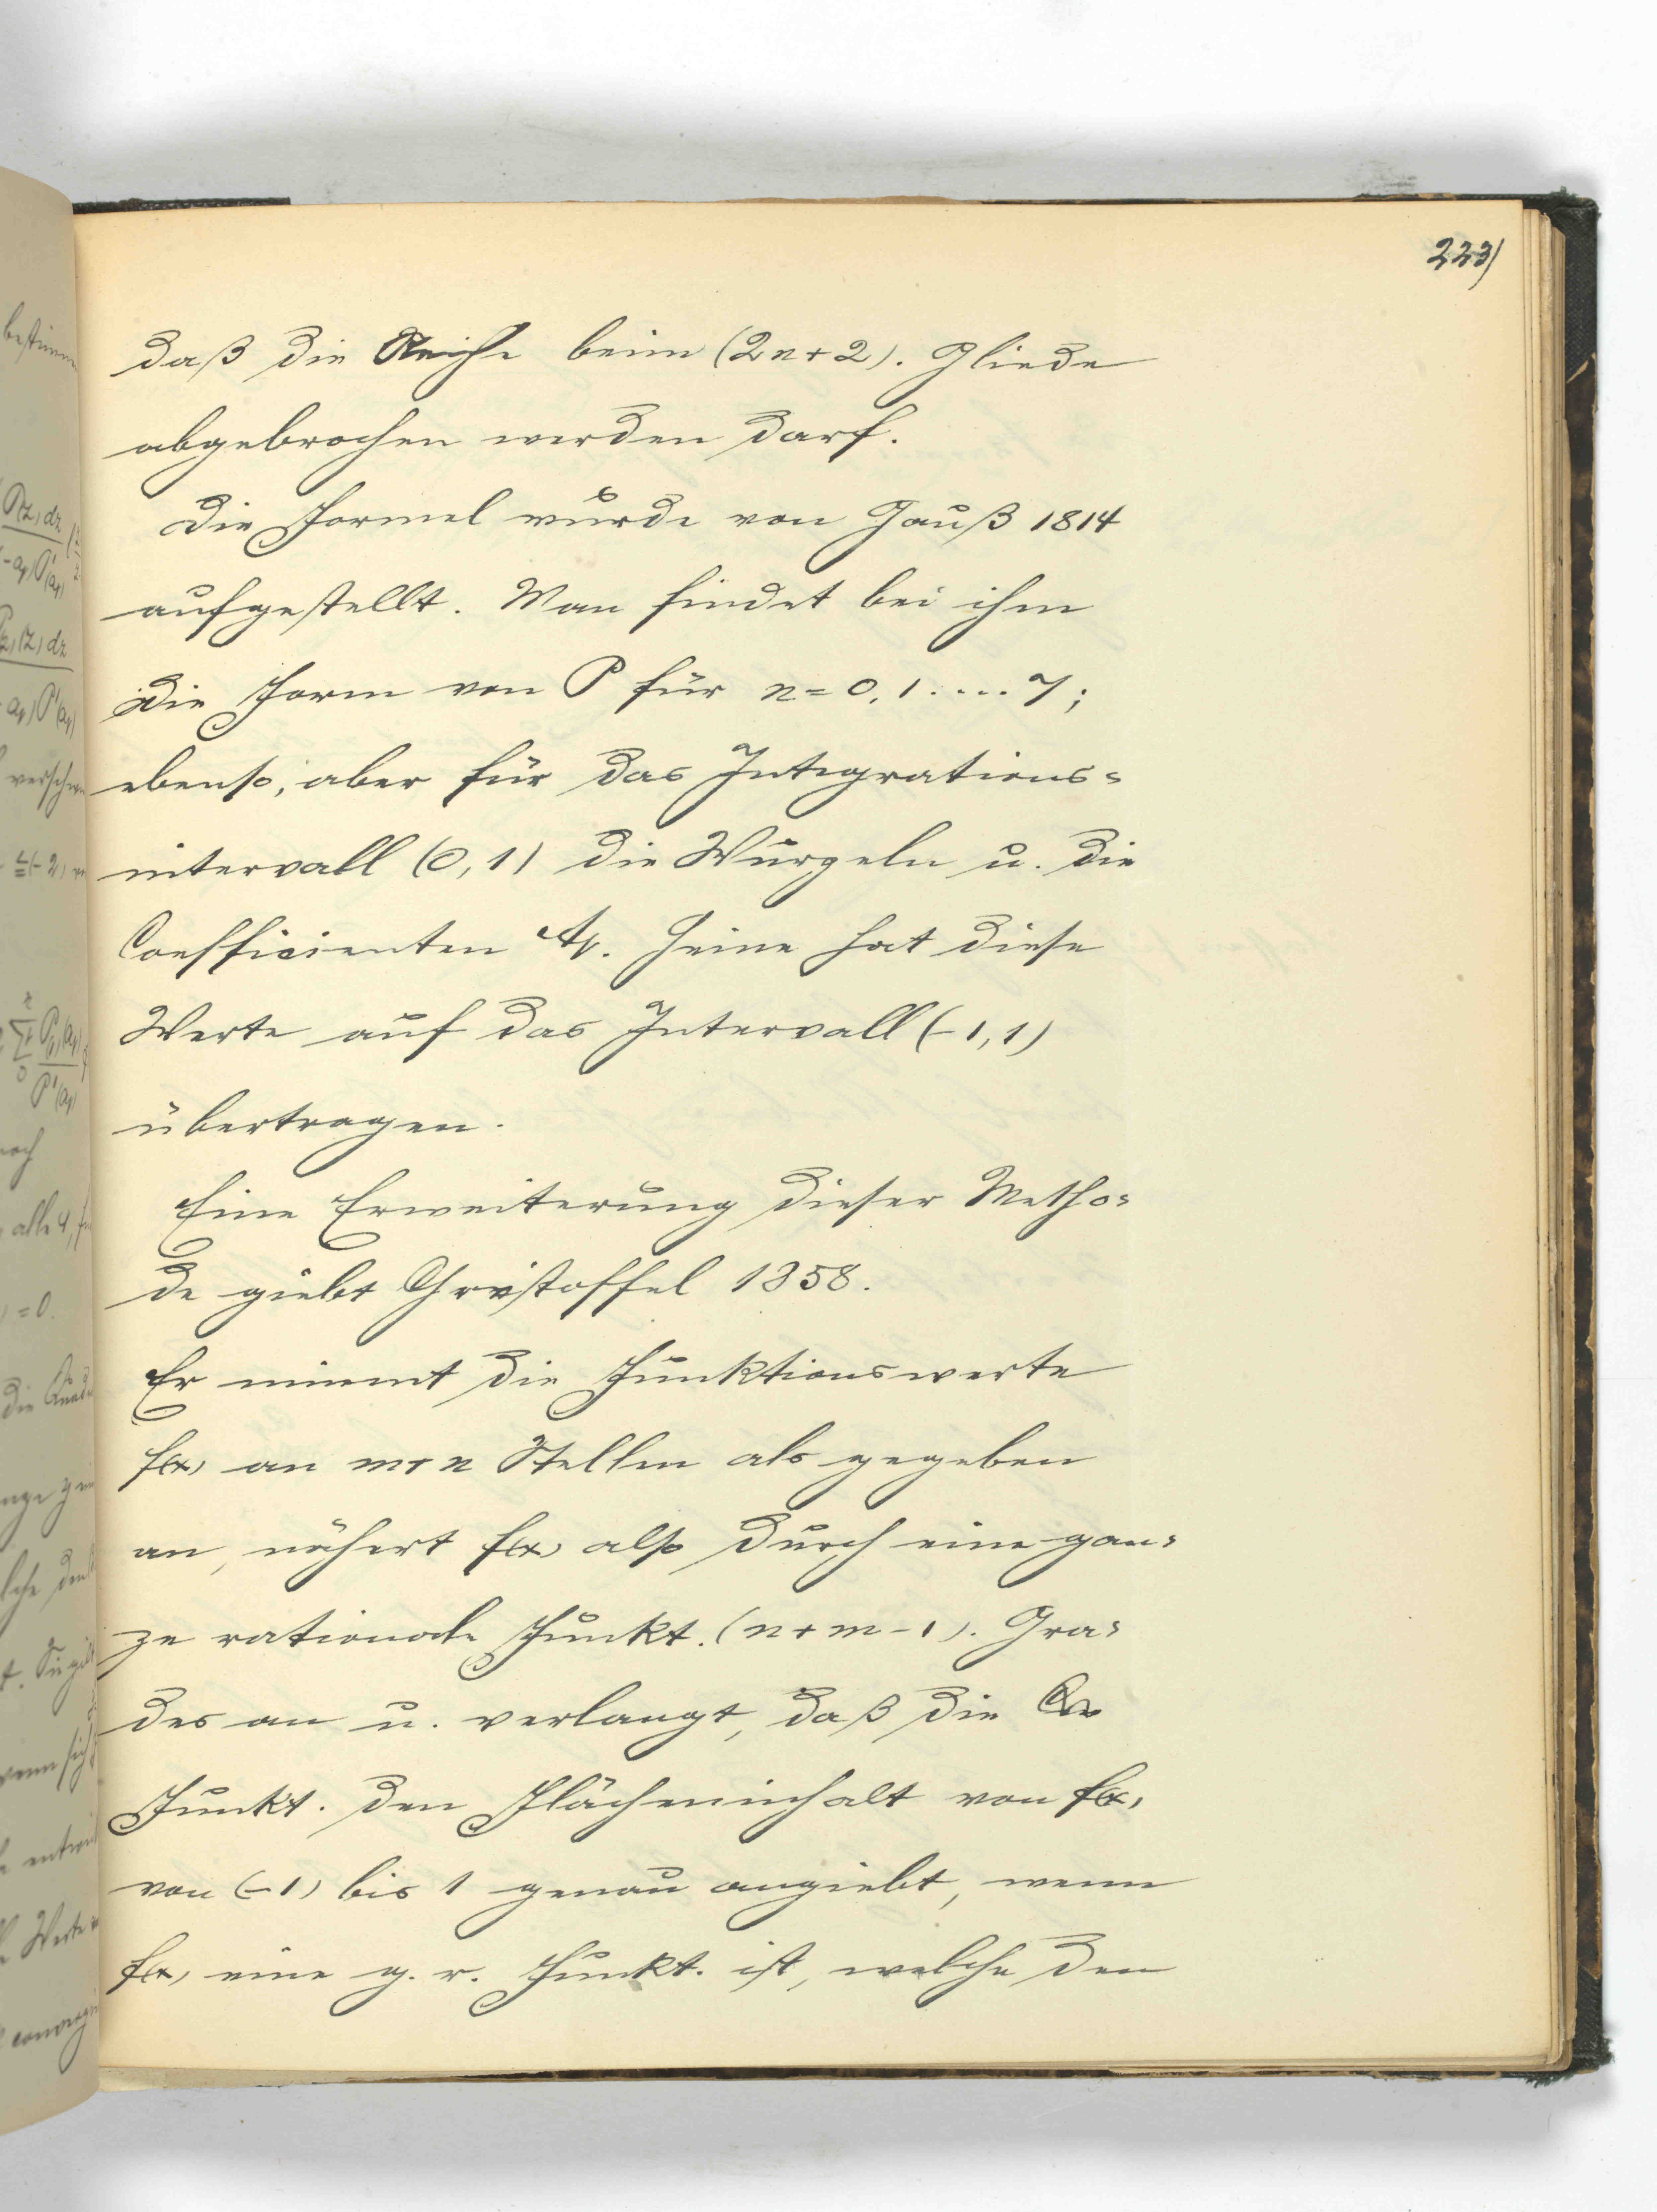 223)
daß die Reihe beim (2n+2). Gliede
abgebrochen werden darf.
Die Formel wurde von Gauß 1814
aufgestellt. Man findet bei ihm
die Form von P für n=0,1....7;
ebenso, aber für das Integrations-
intervall (0,1) die Wurzeln u. die
Coefficienten Aₚ. Heine hat diese
Werte auf das Intervall (-1,1)
übertragen.
Eine Erweiterung dieser Metho-
de giebt Christoffel 1858.
Er nimmt die Funktionswerte
f(x) an m+n Stellen als gegeben
an, nähert f(x) also durch eine gan-
ze rationale Funkt. (n+m-1). Gra-
des an u. verlangt, daß die
Funkt. den Flächeninhalt von f(x)
von (-1) bis 1 genau angiebt, wenn
f(x) eine g. r. Funkt. ist, welche den